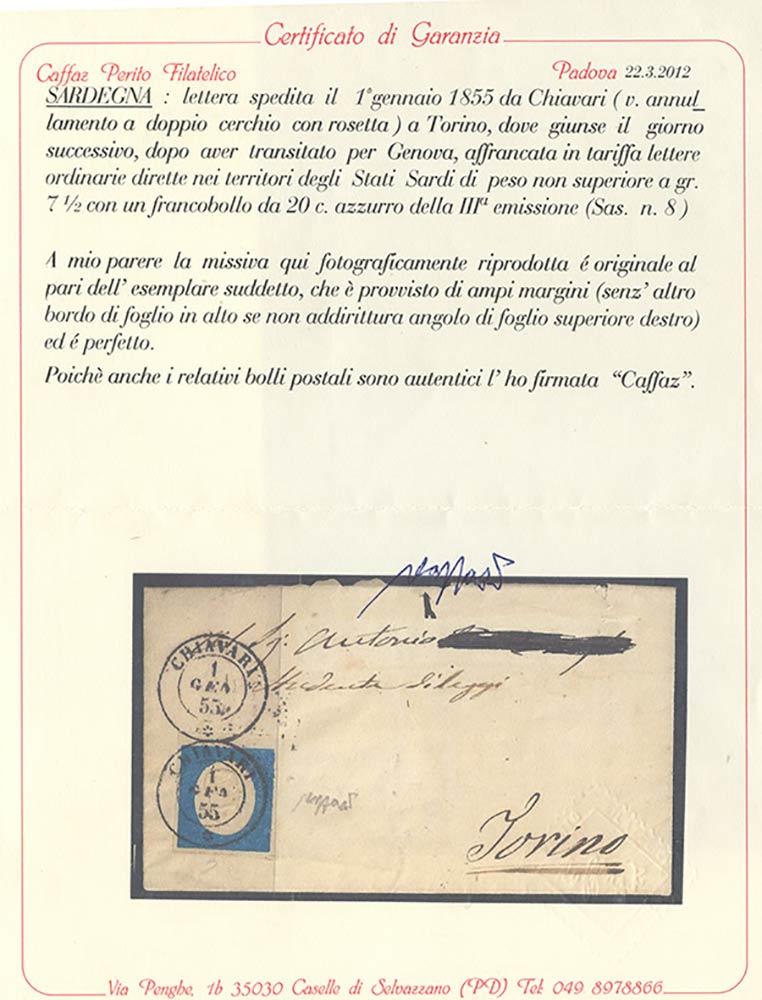 Certificato di Garanzia
Caffaz Perito Filatelico Padova 22.3.2012
SARDEGNA : lettera spedita il 1°gennaio 1855 da Chiavari ( v. annul_
lamento a doppio cerchio con rosetta ) a Torino, dove giunse il giorno
successivo, dopo aver transitato per Genova, affrancata in tariffa lettere
ordinarie dirette nei territori degli Stati Sardi di peso non superiore a gr.
7 ½ con un francobollo da 20 c. azzurro della IIIª emissione (Sas. n. 8 )
A mio parere la missiva qui fotograficamente riprodotta é originale al
pari dell' esemplare suddetto, che è provvisto di ampi margini (senz' altro
bordo di foglio in alto se non addirittura angolo di foglio superiore destro)
ed é perfetto.
Poichè anche i relativi bolli postali sono autentici l' ho firmata “Caffaz”.
Antonio
CHIAVARI
1
GEN
55
Studente di leggi
CHIAVARI
1
GEN
55
Torino
Via Penghe, 1b 35030 Caselle di Selvazzano (PD) Tel. 049 8978866